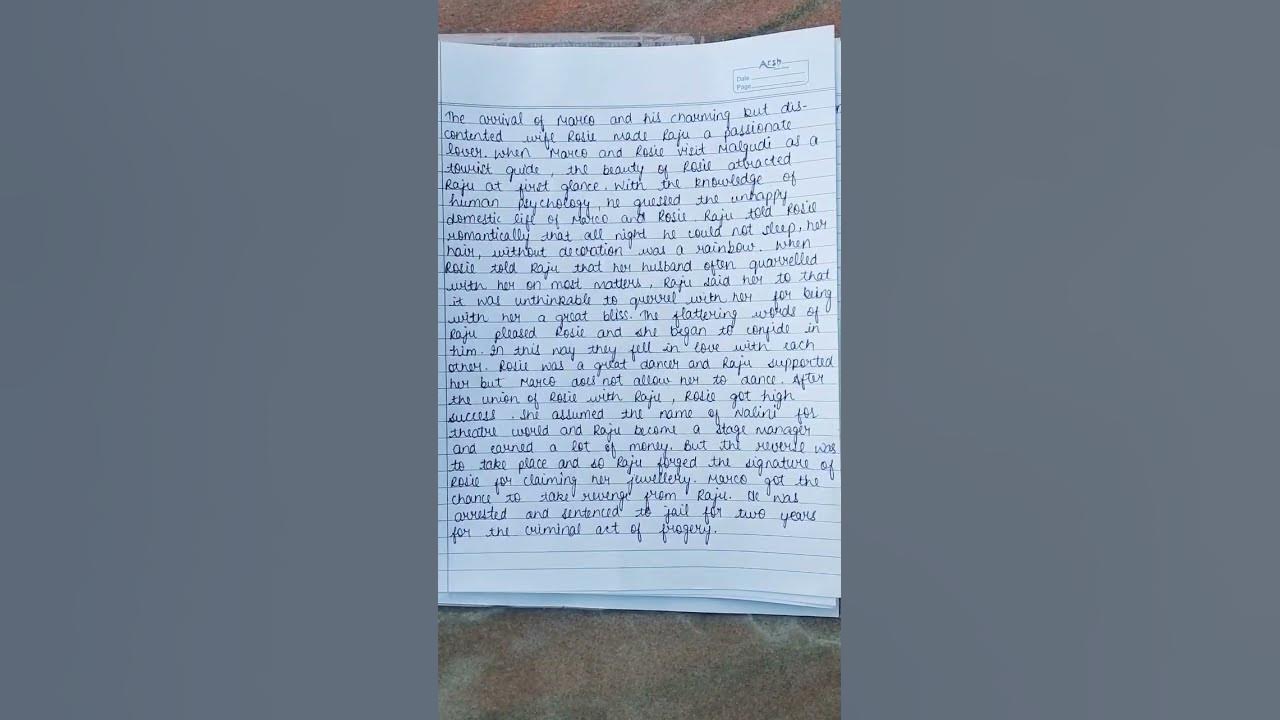 Arsh
Date
Page
The arrival of Marco and his charming but dis-
contented wife Rosie made Raju a passionate
lover. When Marco and Rosie visit Malgudi as a
tourist guide, the beauty of Rosie attracted
Raju at first glance. With the knowledge of
human psychology, he guessed the unhappy
domestic life of Marco and Rosie. Raju told Rosie
romantically that all night he could not sleep, her
hair, without decoration was a rainbow. When
Rosie told Raju that her husband often quarrelled
with her on most matters, Raju said her to that
it was unthinkable to querrel with her for being
with her a great bliss. The flattering words of
Raju pleased Rosie and she began to confide in
him. In this way they fell in love with each
other. Rosie was a great dancer and Raju supported
her but Marco does not allow her to dance. After
the union of Rosie with Raju, Rosie got high
success. She assumed the name of Nalini for
theatre world and Raju become a stage manager
and earned a lot of money. But the reverse was
to take place and so Raju forged the signature of
Rosie for claiming her jewellery. Marco got the
chance to take revenge from Raju. He was
arrested and sentenced to jail for two years
for the criminal act of frogery.